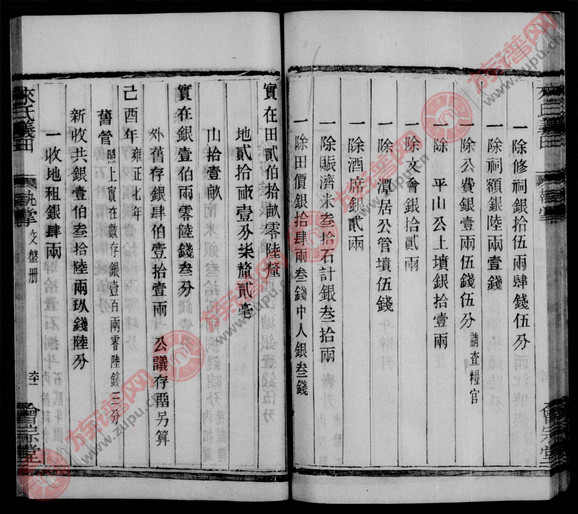 一除修祠銀拾伍兩肆錢伍分
一除祠額銀陸兩壹錢
一除公費銀壹兩伍錢伍分 請查糧官
一除潭居公管墳伍錢
一除平山公上墳銀拾壹兩
一除文會銀拾貳兩
一除酒席銀貳兩
一除賑濟米叁拾石計銀叁拾兩
一除田價銀拾肆兩叁錢中人銀叁錢
實在田貳伯拾畝零陸釐
地貳拾畝壹分柒釐貳毫
山拾壹畝
實在銀壹伯兩零陸錢叁分
外舊存銀肆伯壹拾壹兩 公議存酯另算
己酉年 雍正七年
舊管 照上實在數存銀壹百兩零陸錢三分
新收共銀壹伯叁拾陸兩玖錢陸分
一收地租銀肆兩
來氏義田
文盤册
會宗堂
來氏義田
會宗堂
族谱网
www.zupu.cn